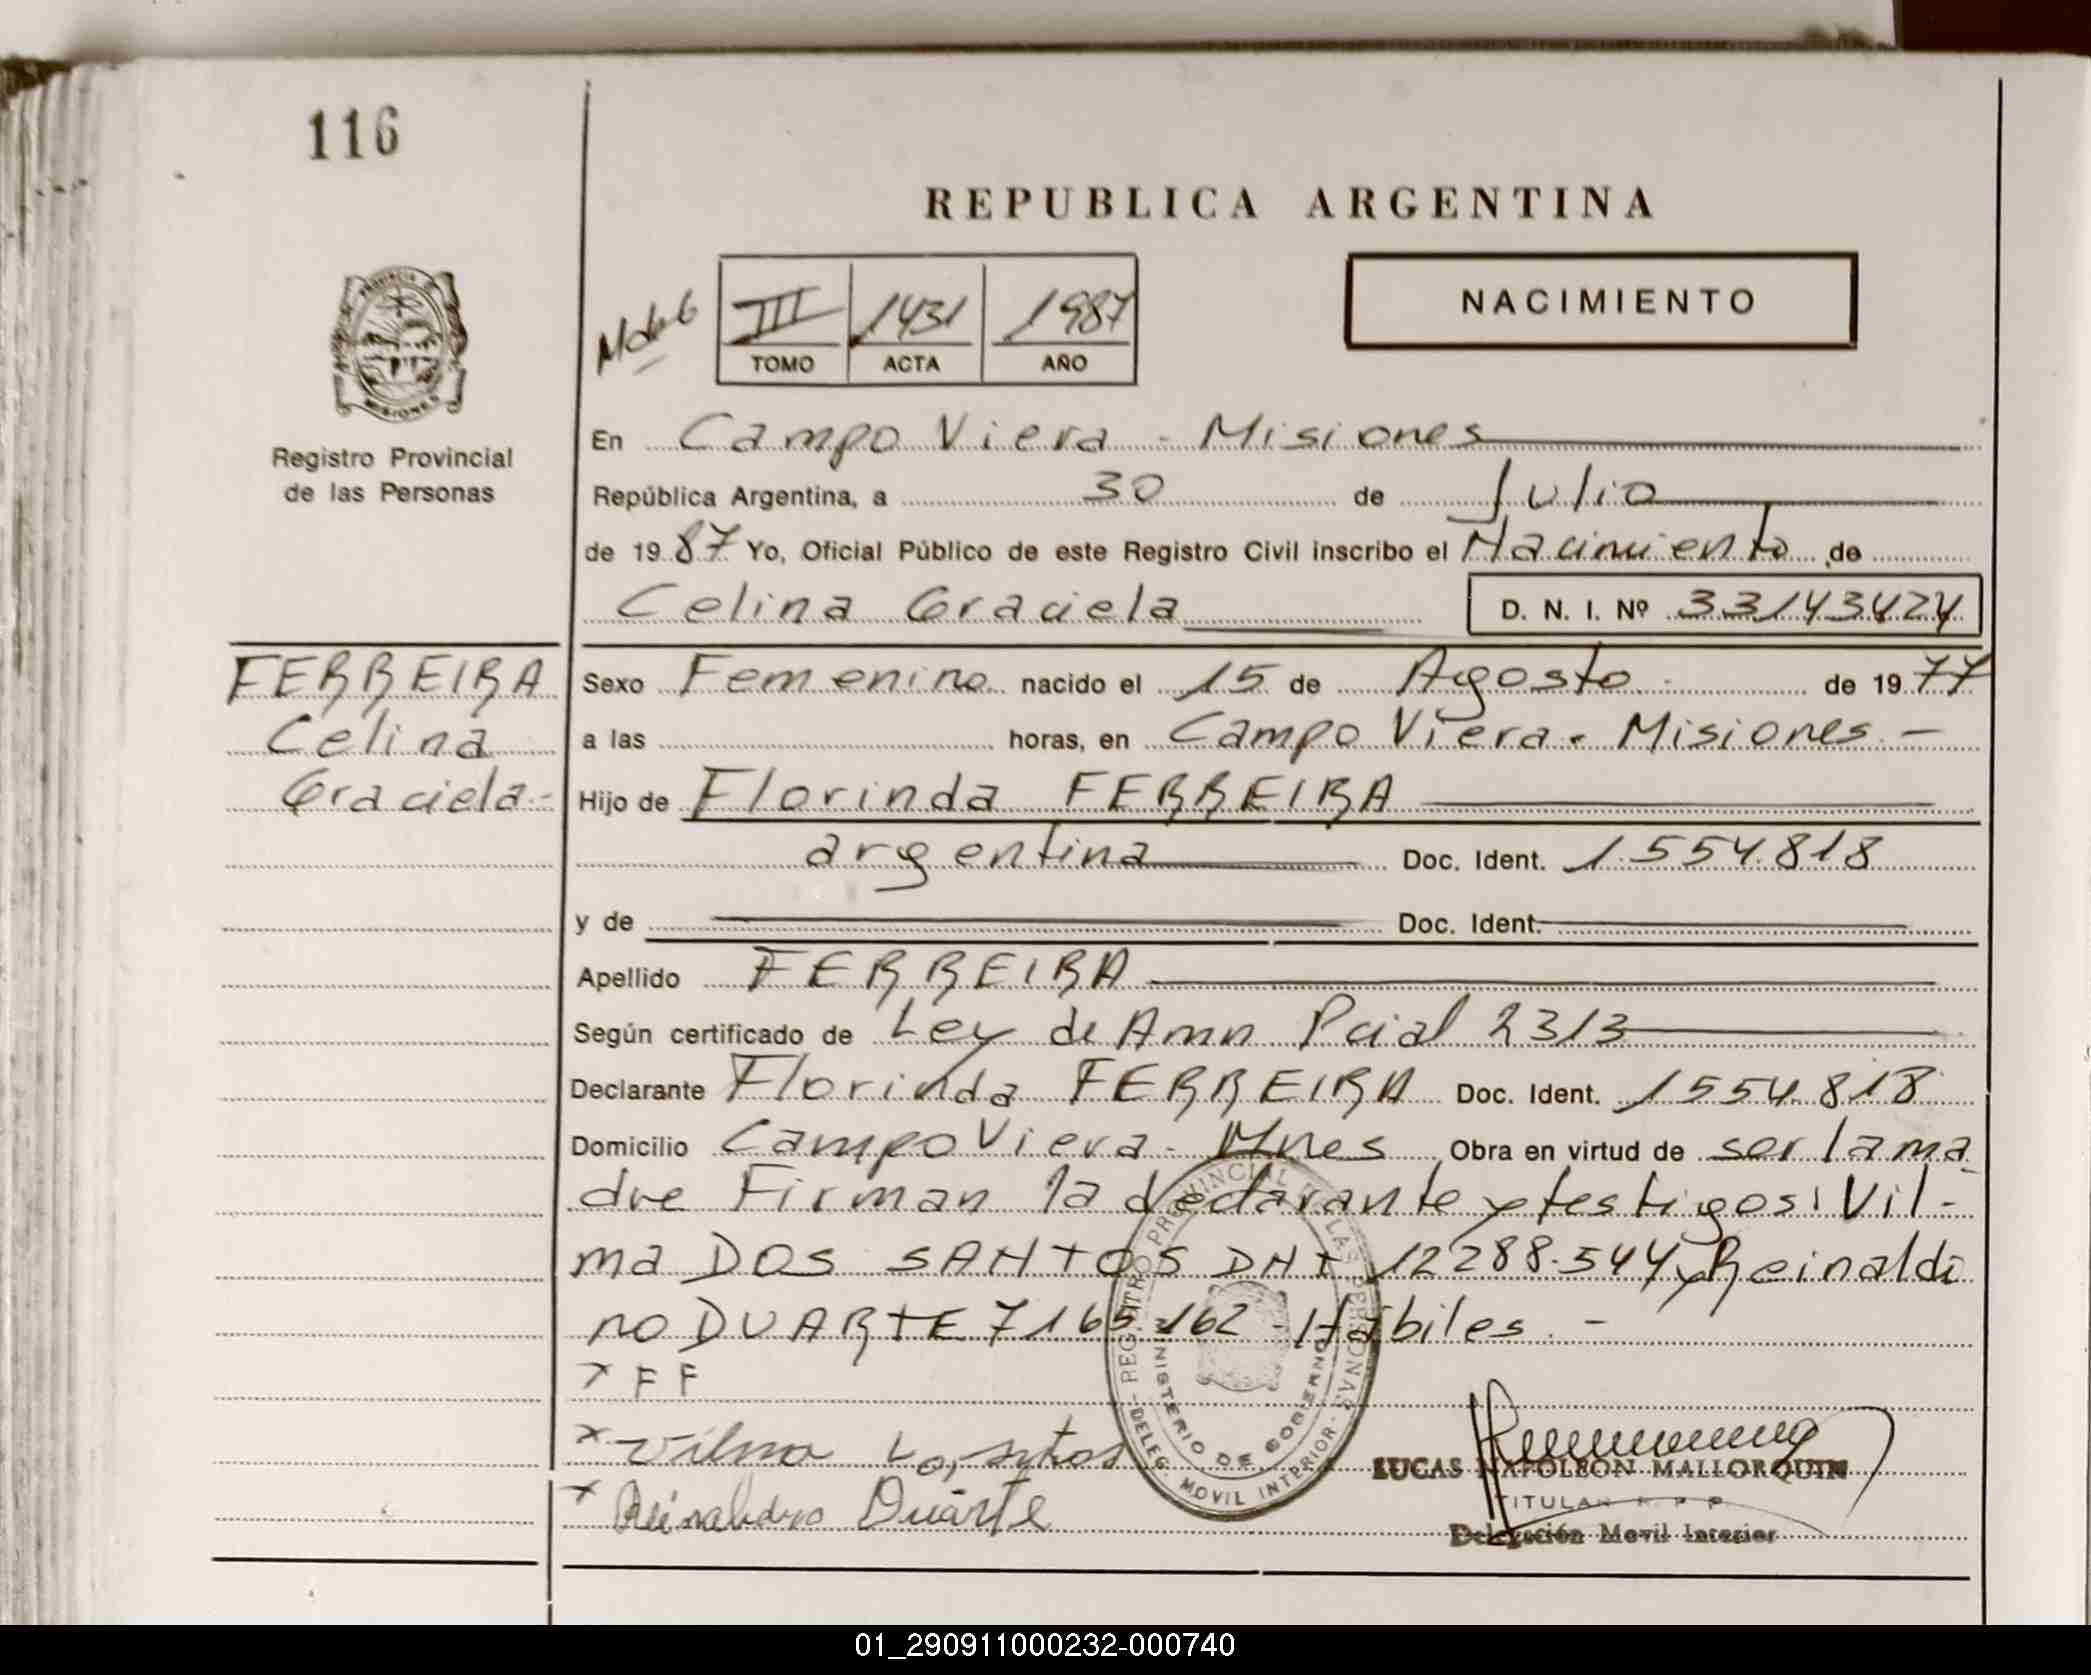 116
REPUBLICA ARGENTINA
III 1431 1987
TOMO ACTA AÑO
NACIMIENTO
PROVINCIA
MISIONES
Registro Provincial
de las Personas
En Campo Viera - Misiones
República Argentina, a 30 de Julio
de 1987 Yo, Oficial Público de este Registro Civil inscribo el Nacimiento de
Celina Graciela D. N. I. Nº 33143424
FERREIRA
Celina
Graciela-
Sexo Femenino nacido el 15 de Agosto de 1977
a las horas, en Campo Viera - Misiones -
Hijo de Florinda FERREIRA
argentina Doc. Ident. 1.554.818
y de Doc. Ident.
Apellido FERREIRA
Según certificado de Ley de Amn Pcial 2313
Declarante Florinda FERREIRA Doc. Ident. 1554.818
Domicilio Campo Viera - Mnes Obra en virtud de ser la ma
dre Firman la declarante y testigos: Vil-
ma DOS SANTOS DNI 12288.544 y Reinaldi
no DUARTE 7165.162 - Hábiles. -
x F F
x Vilma
x Duarte
REGISTRO PROVINCIAL DE LAS PERSONAS
MINISTERIO DE GOBIERNO
- DELEG. MOVIL INTERIOR -
LUCAS NAPOLEON MALLORQUIN
TITULAR R. P. P.
Delegación Movil Interior
01_290911000232-000740